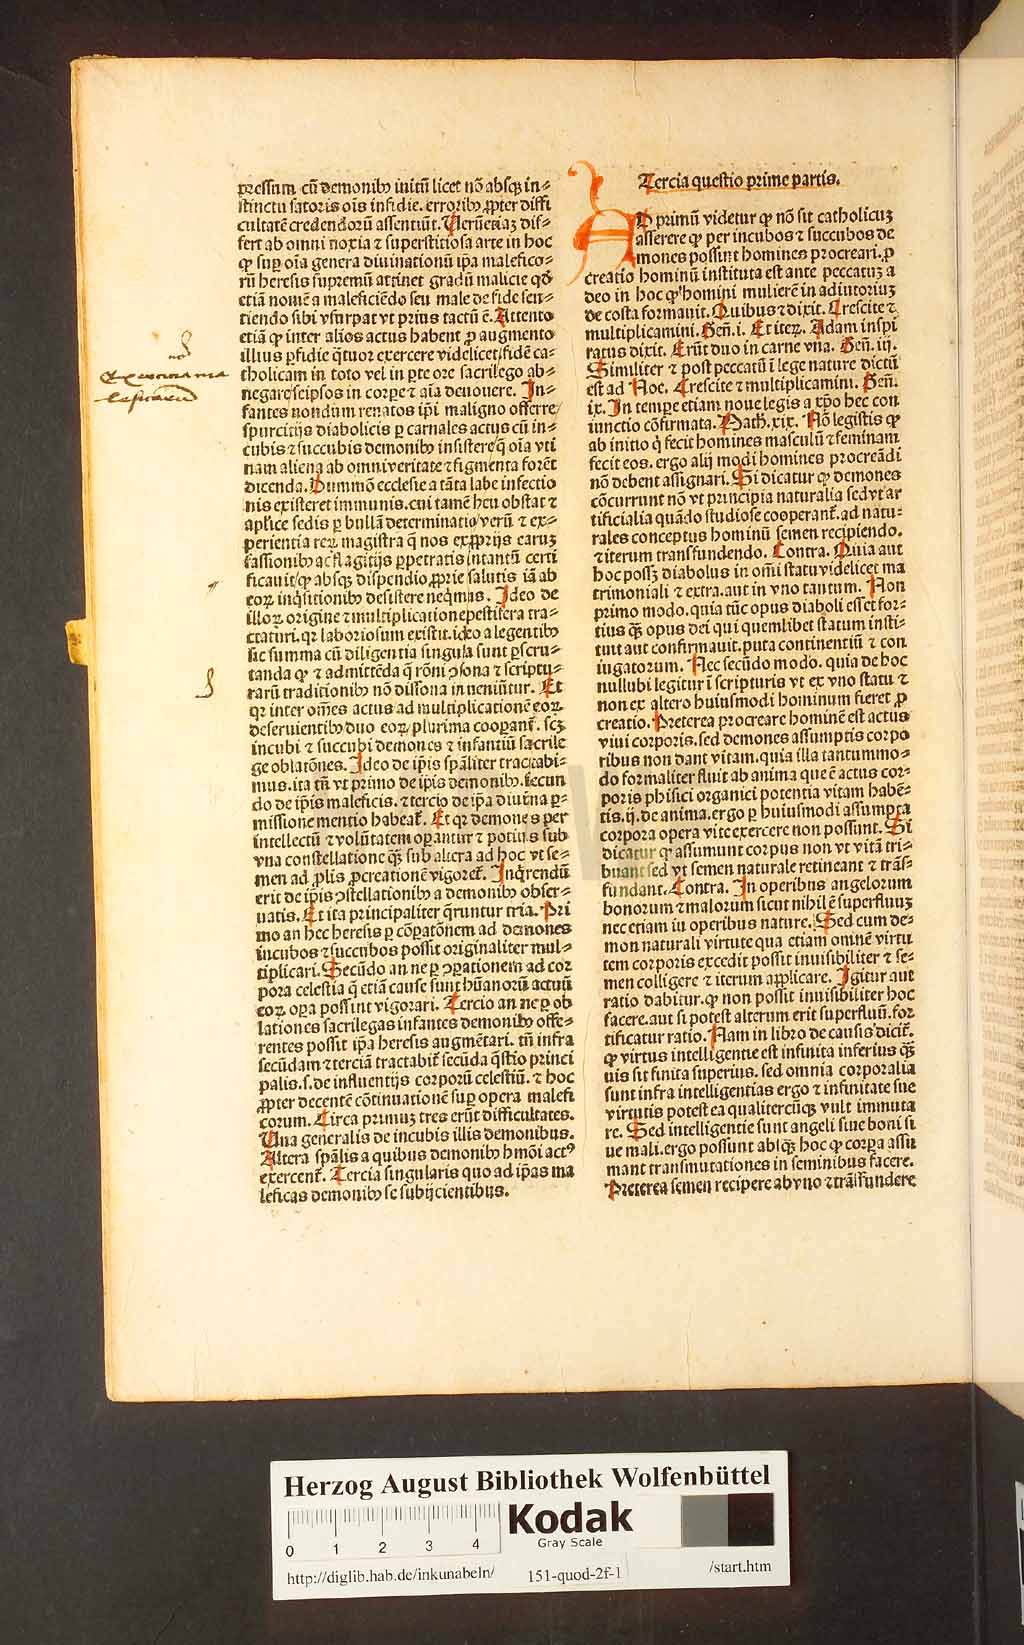 pressum cū demonibꝰ initū licet nō absqꝫ in⸗
stinctu satoris oīs infidie. erroribꝰ ꝓpter diffi
cultatē credendorū assentiūt. Uerūetiaꝫ dif⸗
fert ab omni noxia ⁊ superstitiosa arte in hoc
ꝙ suꝑ oīa genera diuinationū ipa malefico⸗
rū heresis supremū attinet gradū malicie qđ
etiā nomē a maleficiēdo seu male de fide sen⸗
tiendo sibi vsurpat vt prius tactū ē. Attento
etiā ꝙ inter alios actus habent ꝓ augmento
illius ꝑfidie q̈tuor exercere videlicet fidē ca⸗
tholicam in toto vel in ꝑte ore sacrilego ab⸗
negare seipsos in corpe ⁊ aīa deuouere. In⸗
fantes nondum renatos ip̄i maligno offerre
spurcitijs diabolicis ꝑ carnales actus cū in⸗
cubis ⁊ succubis demonibꝰ insistere q̄ oīa vti
nam aliena ab omni veritate ⁊ figmenta forēt
dicenda. Dummō ecclesie a tāta labe infectio
nis existeret immunis. cui tamē heu obstat ⁊
apl̄ice sedis ꝑ bullā determinatio verū ⁊ ex⸗
perientia reꝝ magistra q̄ nos ex ꝓprijs earuꝫ
fassionibꝰ ac flagitijs ꝑpetratis intantū certi
ficauit ꝙ absqꝫ dispendio ꝓprie salutis iā ab
eoꝝ inq̇sitionibꝰ desistere neq̄mus. Ideo de
illoꝝ origine ⁊ multiplicatione pestifera tra⸗
ctaturi. qꝛ laboriosum existit. ideo a legentibꝰ
sic summa cū diligentia singula sunt ꝑscru⸗
tanda ꝙ ⁊ admittēda q̄ rōni ↄsona ⁊ scriptu⸗
rarū traditionibꝰ nō dissona inueniūtur. Et
qꝛ inter om̄es actus ad multiplicationē eoꝝ
deseruientibꝰ duo eoꝝ plurima coopanť. scꝫ
incubi ⁊ succubi demones ⁊ infantiū sacrile
ge oblatōnes. Ideo de ip̄is sp̄aliter tractabi⸗
mus. ita tn̄ vt primo de ip̄is demonibꝰ. secun
do de ip̄is maleficis. ⁊ tercio de ip̄a diuīna ꝑ⸗
missione mentio habeať. Et qꝛ demones per
intellectū ⁊ volūtatem opantur ⁊ potius sub
vna constellatione q̄ꝫ sub altera ad hoc vt se⸗
men ad ꝓlis ꝓcreationē vigoreť. Inq̇rendū
erit de ip̄is ↄstellationibꝰ a demonibꝰ obser⸗
uatis. Et ita principaliter q̄runtur tria. Pri
mo an hec heresis ꝑ cōpatōnem ad demones
incubos ⁊ succubos possit originaliter mul⸗
tiplicari. Secūdo an ne ꝑ ↄpationem ad cor
pora celestia q̄ etiā cause sunt hūanorū actuū
eoꝝ opa possint vigorari. Tercio an ne ꝑ ob
lationes sacrilegas infantes demonibꝰ offe⸗
rentes possit ip̄a heresis augmētari. tn̄ infra
secūdam ⁊ terciā tractabiť secūda q̄stio princi
palis. s. de influentijs corporū celestiū. ⁊ hoc
ꝓpter decentē cōtinuationē suꝑ opera malefi
corum. Circa primuꝫ tres erūt difficultates.
Una generalis de incubis illis demonibus.
Altera sp̄alis a quibus demonibꝰ hmōi actꝰ
exercenť. Tercia singularis quo ad ip̄as ma
leficas demonibꝰ se subijcientibus.
Tercia questio prime partis.
AD primū videtur ꝙ nō sit catholicuꝫ
asserere ꝙ per incubos ⁊ succubos de
mones possint homines procreari. ꝓ
creatio hominū instituta est ante peccatuꝫ a
deo in hoc ꝙ homini mulierē in adiutoriuꝫ
de costa formauit. Quibus ⁊ dixit. Crescite ⁊
multiplicamini. Gen̄. i. Et iteꝝ. Adam inspi
ratus dixit. Erūt duo in carne vna. Gen̄. iij.
Similiter ⁊ post peccatū ī lege nature dictū
est ad Noe. Crescite ⁊ multiplicamini. Gen̄.
ix. In tempe etiam noue legis a xp̄o hec con
iunctio cōfirmata. Math. xix. Nō legistis ꝙ
ab initio q̇ fecit homines masculū ⁊ feminam
fecit eos. ergo alij modi homines procreādi
nō debent assignari. Si dicatur ꝙ demones
cōcurrunt nō vt principia naturalia sed vt ar
tificialia quādo studiose cooperanť. ad natu⸗
rales conceptus hominū semen recipiendo.
⁊ iterum transfundendo. Contra. Quia aut
hoc possꝫ diabolus in om̄i statu videlicet ma
trimoniali ⁊ extra. aut in vno tantum. Non
primo modo. quia tūc opus diaboli esset for⸗
tius q̄ꝫ opus dei qui quemlibet statum insti⸗
tuit aut confirmauit. puta continentiū ⁊ con
iugatorum. Nec secūdo modo. quia de hoc
nullubi legitur ī scripturis vt ex vno statu ⁊
non ex altero huiusmodi hominum fieret ꝓ
creatio. Preterea procreare hominē est actus
viui corporis. sed demones assumptis corpo
ribus non dant vitam. quia illa tantummo⸗
do formaliter fluit ab anima que ē actus cor⸗
poris phisici organici potentia vitam habē⸗
tis. ij. de anima. ergo ꝑ huiusmodi assumpta
corpora opera vite exercere non possunt. Si
dicatur ꝙ assumunt corpus non vt vitā tri⸗
buant sed vt semen naturale retineant ⁊ trās⸗
fundant. Contra. In operibus angelorum
bonorum ⁊ malorum sicut nihil ē superfluuꝫ
nec etiam in operibus nature. Sed cum de⸗
mon naturali virtute qua etiam omnē virtu
tem corporis excedit possit inuisibiliter ⁊ se⸗
men colligere ⁊ iterum applicare. Igitur aut
ratio dabitur. ꝙ non possit inuisibiliter hoc
facere. aut si potest alterum erit superfluū. for
tificatur ratio. Nam in libro de causis diciť.
ꝙ virtus intelligentie est infinita inferius q̄ꝫ
uis sit finita superius. sed omnia corporalia
sunt infra intelligentias ergo ⁊ infinitate sue
virtutis potest ea qualitercūqꝫ vult immuta
re. Sed intelligentie sunt angeli siue boni si
ue mali. ergo possunt absqꝫ hoc ꝙ corpa assu
mant transmutationes in seminibus facere.
Preterea semen recipere ab vno ⁊ trāsfundere
Herzog August Bibliothek Wolfenbüttel
0 1 2 3 4
Kodak
Gray Scale
http://diglib.hab.de/inkunabeln/ 151-quod-2f-1 /start.htm